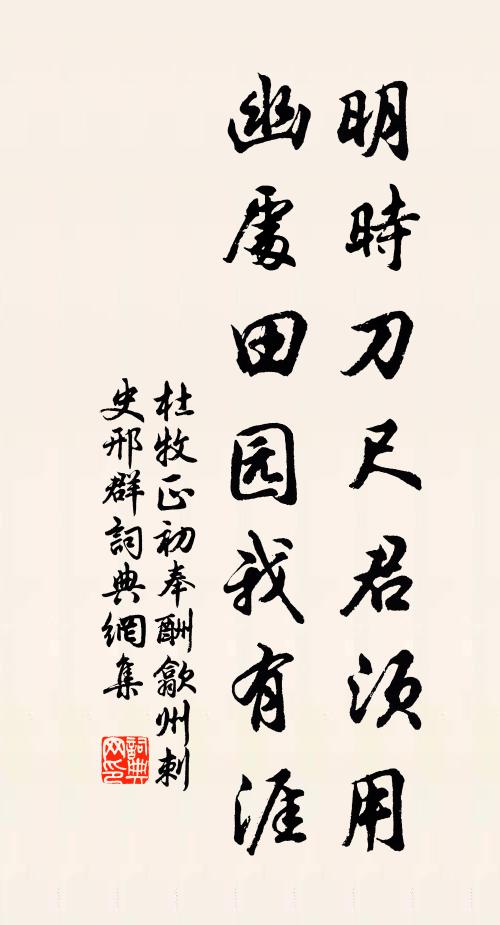 明時刀尺君須用
幽處田园我有涯
杜牧正初奉酬歙州刺
史邢群詞典網集
詞典
网印